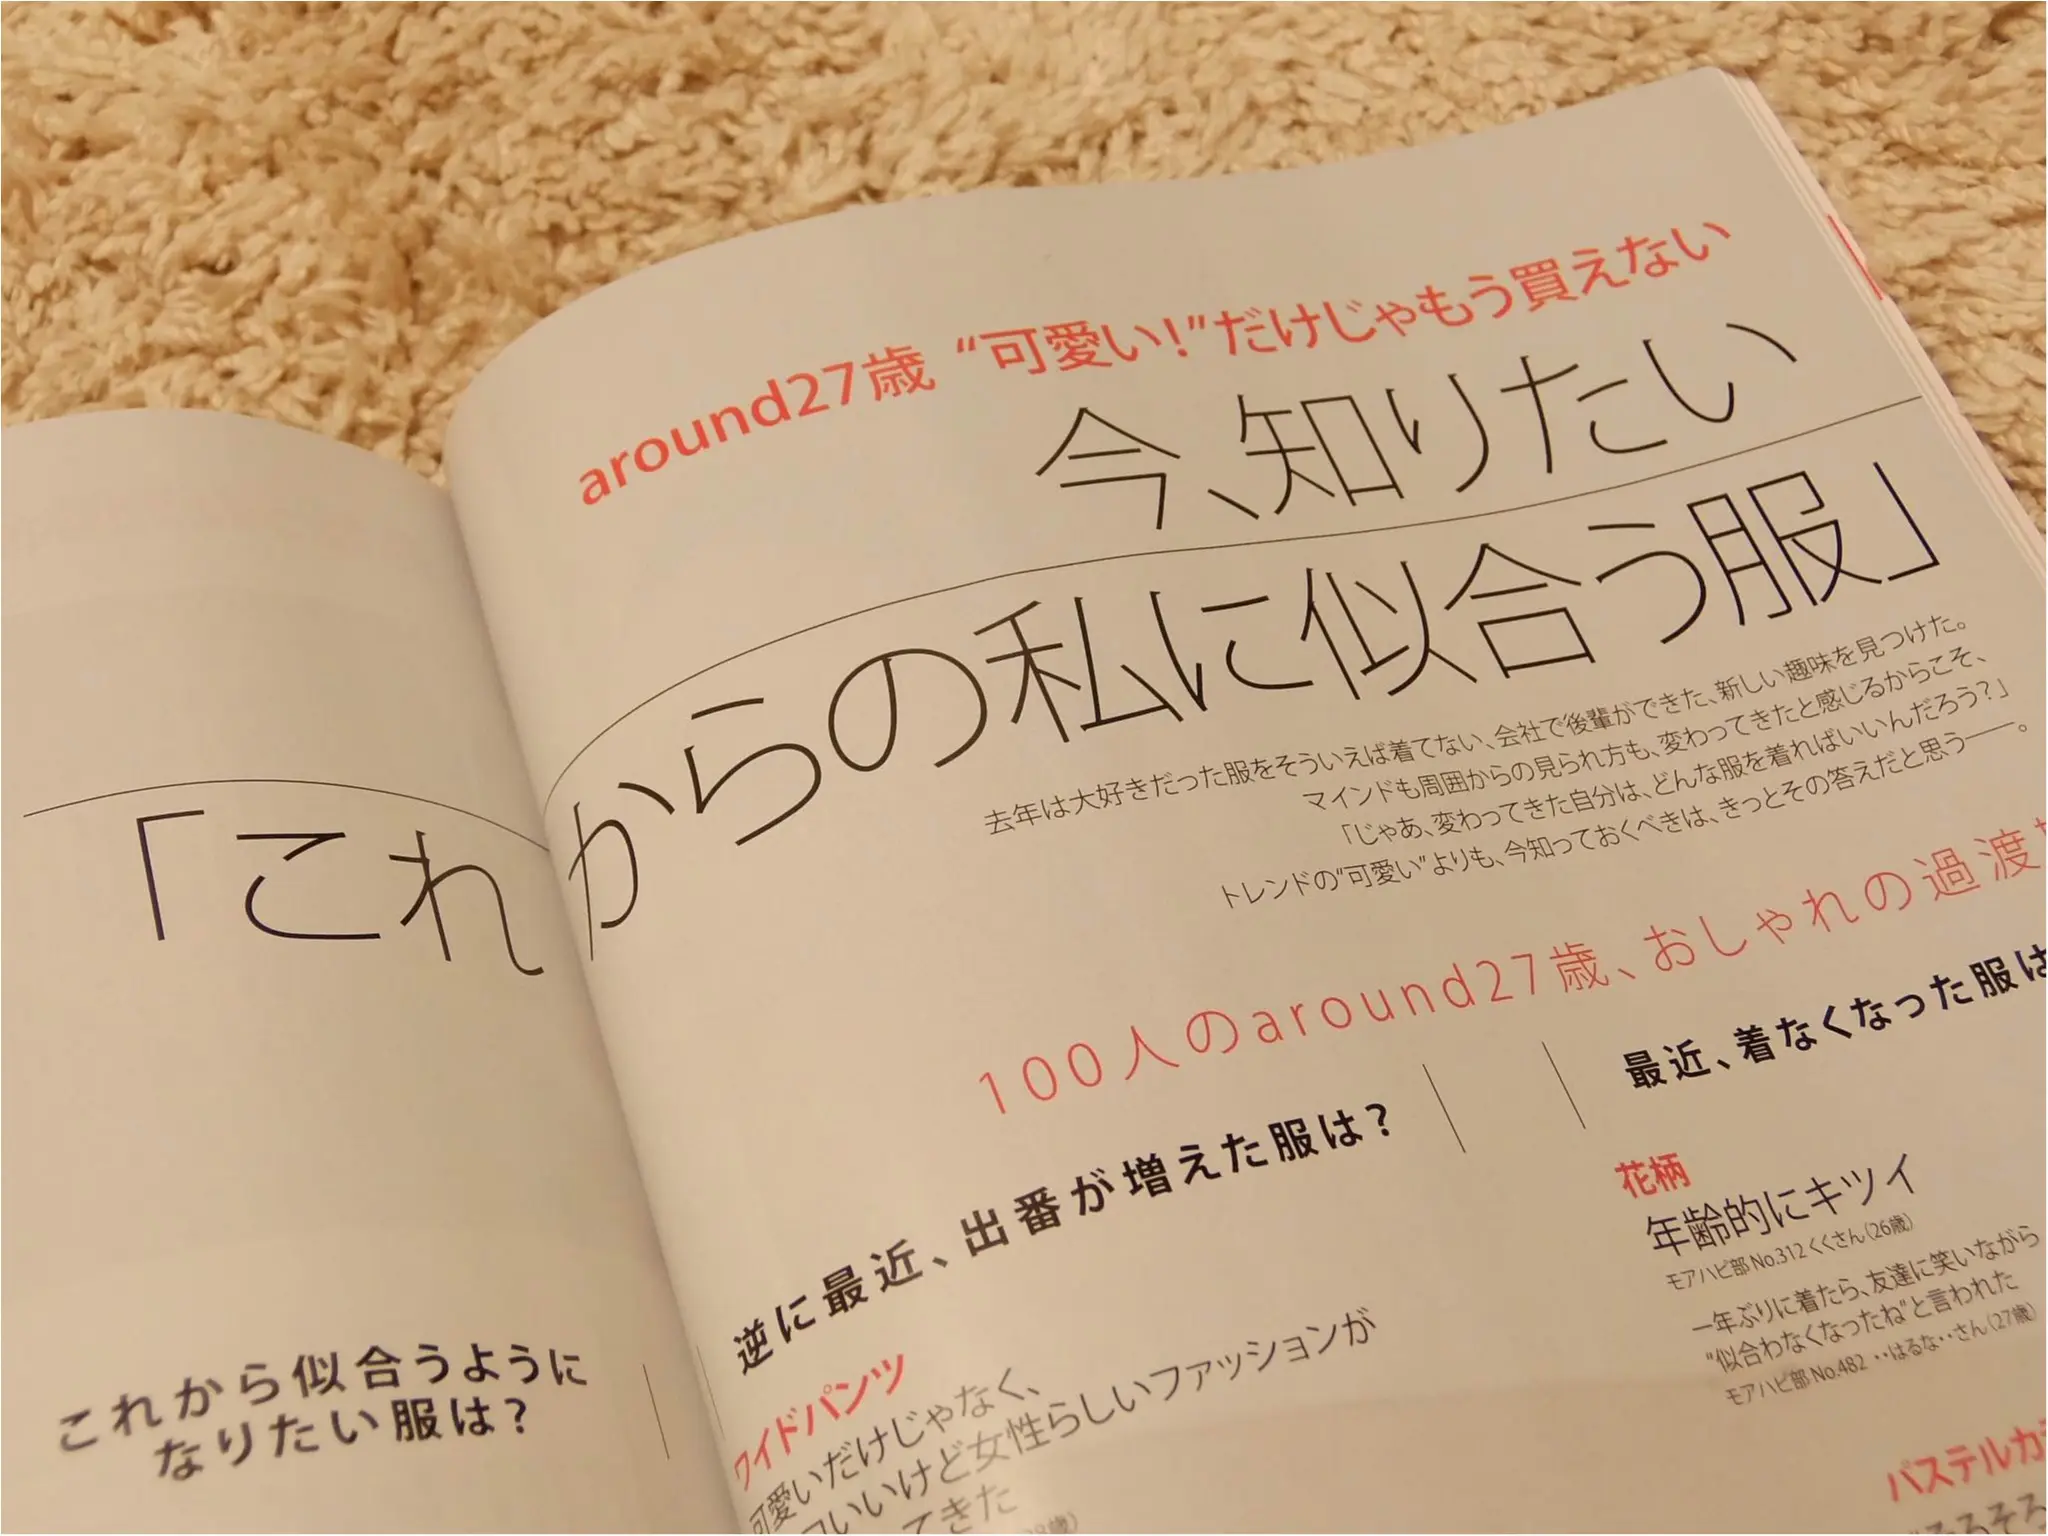 around27歳 “可愛い!”だけじゃもう買えない
今、知りたい
「これからの私に似合う服」
去年は大好きだった服をそういえば着てない、会社で後輩ができた、新しい趣味を見つけた。
マインドも周囲からの見られ方も、変わってきたと感じるからこそ、
「じゃあ、変わってきた自分は、どんな服を着ればいいんだろう?」
トレンドの“可愛い”よりも、今知っておくべきは、きっとその答えだと思う――。
100人のaround27歳、おしゃれの過渡
最近、着なくなった服は
花柄
年齢的にキツイ
モアハピ部 No.312 くくさん(26歳)
一年ぶりに着たら、友達に笑いながら
“似合わなくなったね”と言われた
モアハピ部 No.482 ・・はるな・・さん(27歳)
パステルカ
逆に最近、出番が増えた服は?
ワイドパンツ
可愛いだけじゃなく、
いいけど女性らしいファッションが
てきた
これから似合うように
なりたい服は?